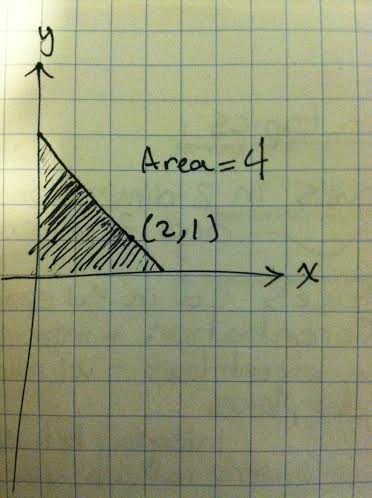 y
Area = 4
(2,1)
x